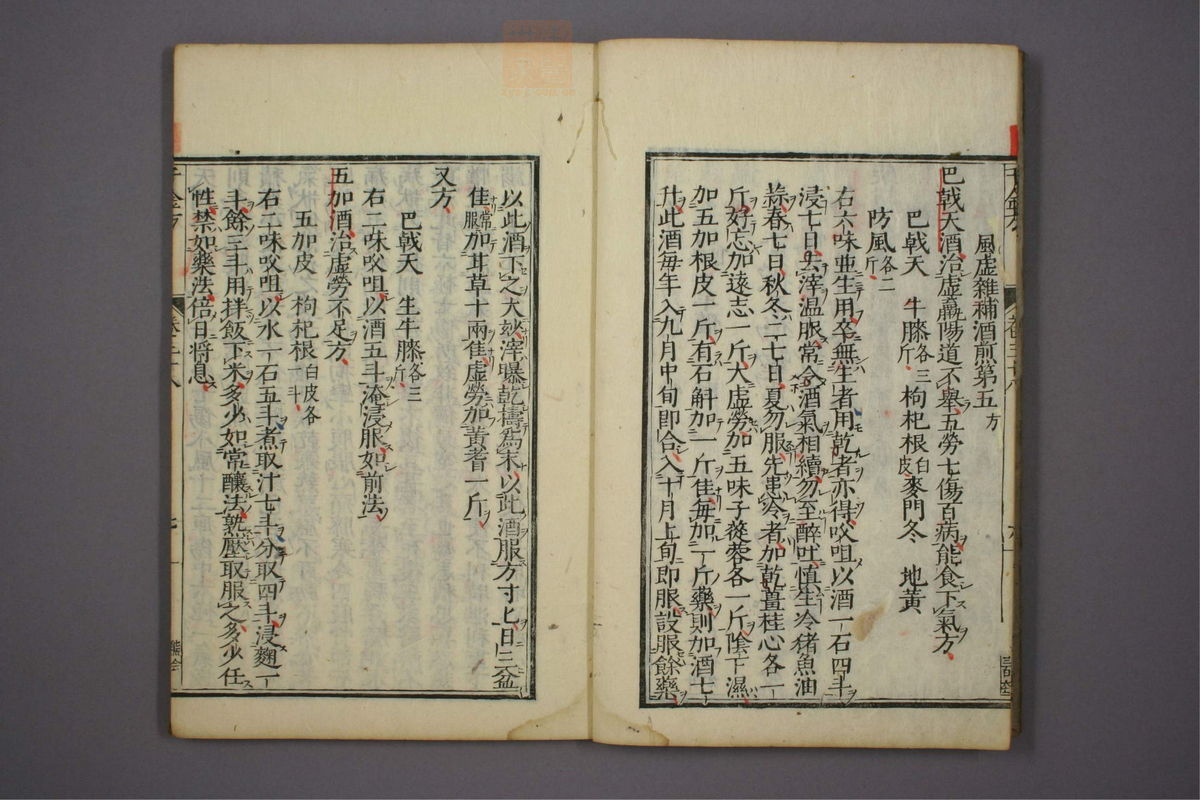 風虛雜補酒煎第五方
巴戟天酒治虛羸陽道不舉五勞七傷百病能食下氣方
巴戟天 牛膝各三斤 枸杞根白皮 麥門冬 地黃
防風各二斤
右六味並生用卒無生者用乾者亦得㕮咀以酒一石四斗
浸七日去滓溫服常令酒氣相續勿至醉吐慎生冷猪魚油
蒜春七日秋冬二七日夏勿服先患冷者加乾薑桂心各一
斤好忘加遠志一斤大虛勞加五味子蓯蓉各一斤陰下濕
加五加根皮一斤有石斛加一斤佳每加一斤藥則加酒七
升此酒每年入九月中旬即合入十月上旬即服設服餘藥
以此酒下之大玅滓曝乾擣爲末以此酒服方寸匕日三益
佳常服加甘草十兩佳虛勞加黃耆一斤
又方
巴戟天 生牛膝各三斤
右二味㕮咀以酒五斗淹浸服如前法
五加酒治虛勞不足方
五加皮之 枸杞根白皮各一斗
右二味㕮咀以水一石五斗煮取汁七斗分取四斗浸麴一
斗餘三斗用拌飯下米多少如常釀法熟壓取服之多少任
性禁如藥法倍日將息
千金方
卷二十八
七